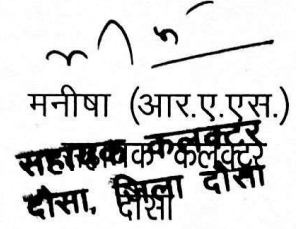 मनीषा (आर.ए.एस.)
सहायक कलक्टर
दौसा, जिला दौसा